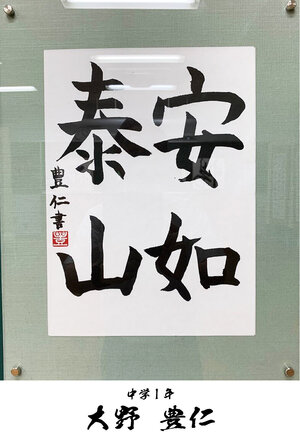 安如
泰山
豊仁書
豊
中学1年
大野 豊仁